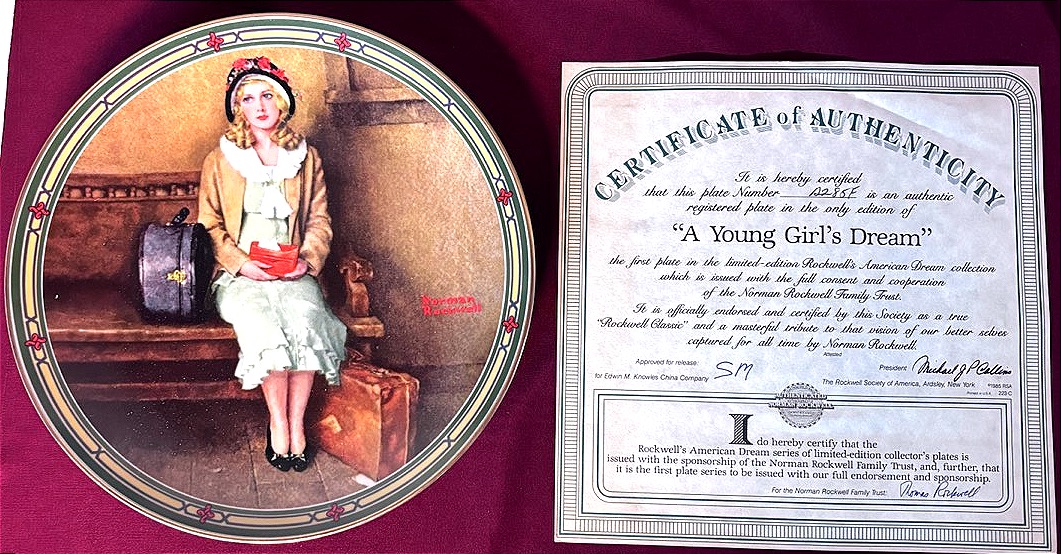 Norman
Rockwell
CERTIFICATE of AUTHENTICITY
It is hereby certified
that this plate Number A285F is an authentic
registered plate in the only edition of
“A Young Girl's Dream”
the first plate in the limited-edition Rockwell's American Dream collection
which is issued with the full consent and cooperation
of the Norman Rockwell Family Trust.
It is officially endorsed and certified by this Society as a true
"Rockwell Classic" and a masterful tribute to that vision of our better selves
captured for all time by Norman Rockwell.
Attested
Approved for release:
for Edwin M. Knowles China Company SM
President Michael J P Collins
The Rockwell Society of America, Ardsley, New York
©1985 RSA
Printed in U.S.A. 223 C
AUTHENTICATED
NORMAN ROCKWELL
I do hereby certify that the
Rockwell's American Dream series of limited-edition collector's plates is
issued with the sponsorship of the Norman Rockwell Family Trust, and, further, that
it is the first plate series to be issued with our full endorsement and sponsorship.
For the Norman Rockwell Family Trust: Thomas Rockwell